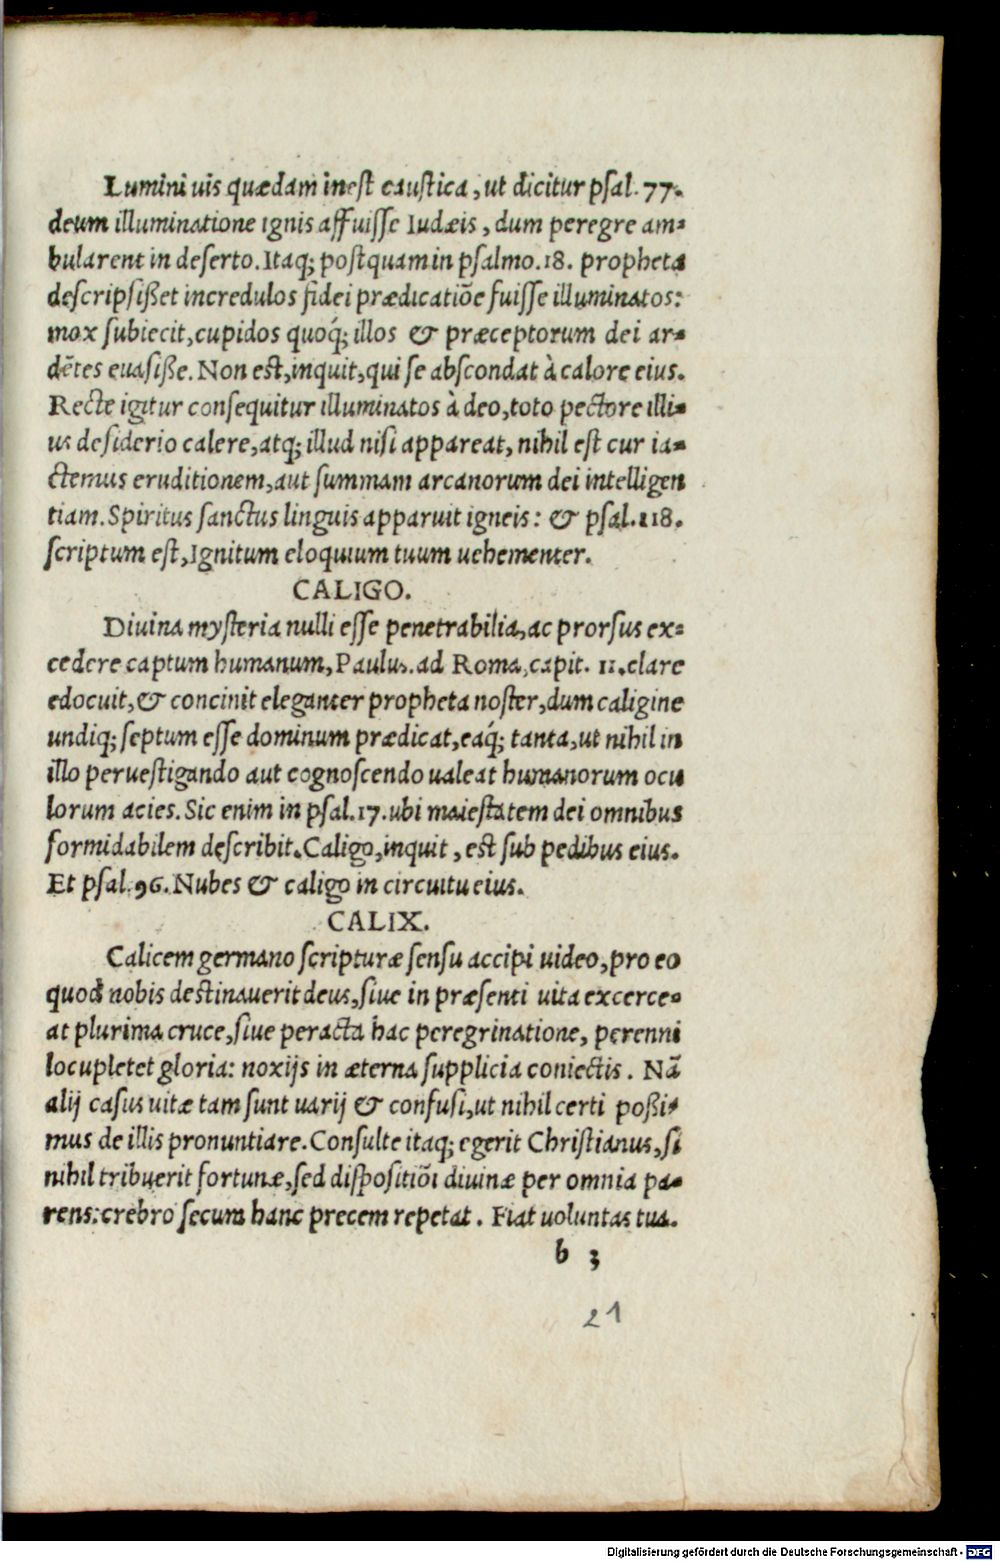 Lumini uis quædam inest caustica, ut dicitur psal. 77.
deum illuminatione ignis affuisse Iudæis, dum peregre am-
bularent in deserto. Itaq; postquam in psalmo. 18. propheta
descripsißet incredulos fidei prædicatiõe fuisse illuminatos:
mox subiecit, cupidos quoq́; illos & præceptorum dei ar-
dẽtes euasiße. Non est, inquit, qui se abscondat à calore eius.
Recte igitur consequitur illuminatos à deo, toto pectore illi-
us desiderio calere, atq; illud nisi appareat, nihil est cur ia-
ctemus eruditionem, aut summam arcanorum dei intelligen
tiam. Spiritus sanctus linguis apparuit igneis: & psal. 118.
scriptum est, Ignitum eloquium tuum uehementer.
CALIGO.
Diuina mysteria nulli esse penetrabilia, ac prorsus ex-
cedere captum humanum, Paulus. ad Roma, capit. 11. clare
edocuit, & concinit eleganter propheta noster, dum caligine
undiq; septum esse dominum prædicat, eaq́; tanta, ut nihil in
illo peruestigando aut cognoscendo ualeat humanorum ocu
lorum acies. Sic enim in psal. 17. ubi maiestatem dei omnibus
formidabilem describit. Caligo, inquit, est sub pedibus eius.
Et psal. 96. Nubes & caligo in circuitu eius.
CALIX.
Calicem germano scripturæ sensu accipi uideo, pro eo
quod nobis destinauerit deus, siue in præsenti uita excerce-
at plurima cruce, siue peracta hac peregrinatione, perenni
locupletet gloria: noxijs in æterna supplicia coniectis. Nã
alij casus uitæ tam sunt uarij & confusi, ut nihil certi poßi-
mus de illis pronuntiare. Consulte itaq; egerit Christianus, si
nihil tribuerit fortunæ, sed dispositiõi diuinæ per omnia pa-
rens: crebro secum hanc precem repetat. Fiat uoluntas tua.
b 3
21
Digitalisierung gefördert durch die Deutsche Forschungsgemeinschaft - DFG